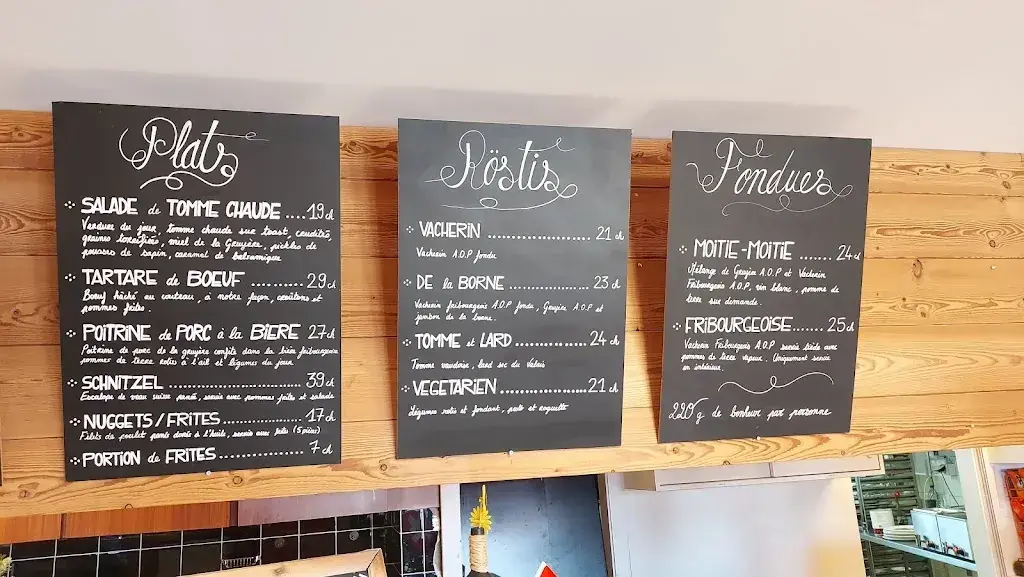 Plats
SALADE de TOMME CHAUDE ....19 ch
Verdure du jour, tomme chaude sur toast, crudités,
graines torréfiées, miel de la Gruyère, pickles de
pousses de sapin, caramel de balsamique
TARTARE de BOEUF .......29 ch
Bœuf hâché au couteau, à notre façon, croûtons et
pommes frites.
POITRINE de PORC à la BIERE 27 ch
Poitrine de porc de la gruyère confite dans la bière fribourgeoise
pommes de terre rotis à l'ail et légumes du jour
SCHNITZEL ..............................39 ch
Escalope de veau suisse panée, servie avec pommes frites et salade
NUGGETS/FRITES ...................17 ch
Filets de poulet panés dorés à l'huile, servis avec frites (5 pièces)
PORTION de FRITES ................7 ch
Röstis
VACHERIN ....................21 ch
Vacherin A.O.P fondu
DE la BORNE .................23 ch
Vacherin fribourgeois A.O.P fondu, Gruyère A.O.P et
jambon de la borne
TOMME et LARD ................24 ch
Tomme vaudoise, lard sec du Valais
VEGETARIEN .................21 ch
Légumes rotis et fondant, pesto et roquette
Fondues
MOITIE-MOITIE .......24 ch
Mélange de Gruyère A.O.P et Vacherin
Fribourgeois A.O.P, vin blanc, pomme de
terre sur demande.
FRIBOURGEOISE.......25 ch
Vacherin Fribourgeois A.O.P servie tiède avec
pommes de terre vapeur. Uniquement servie
en intérieur.
220g de bonheur par personne